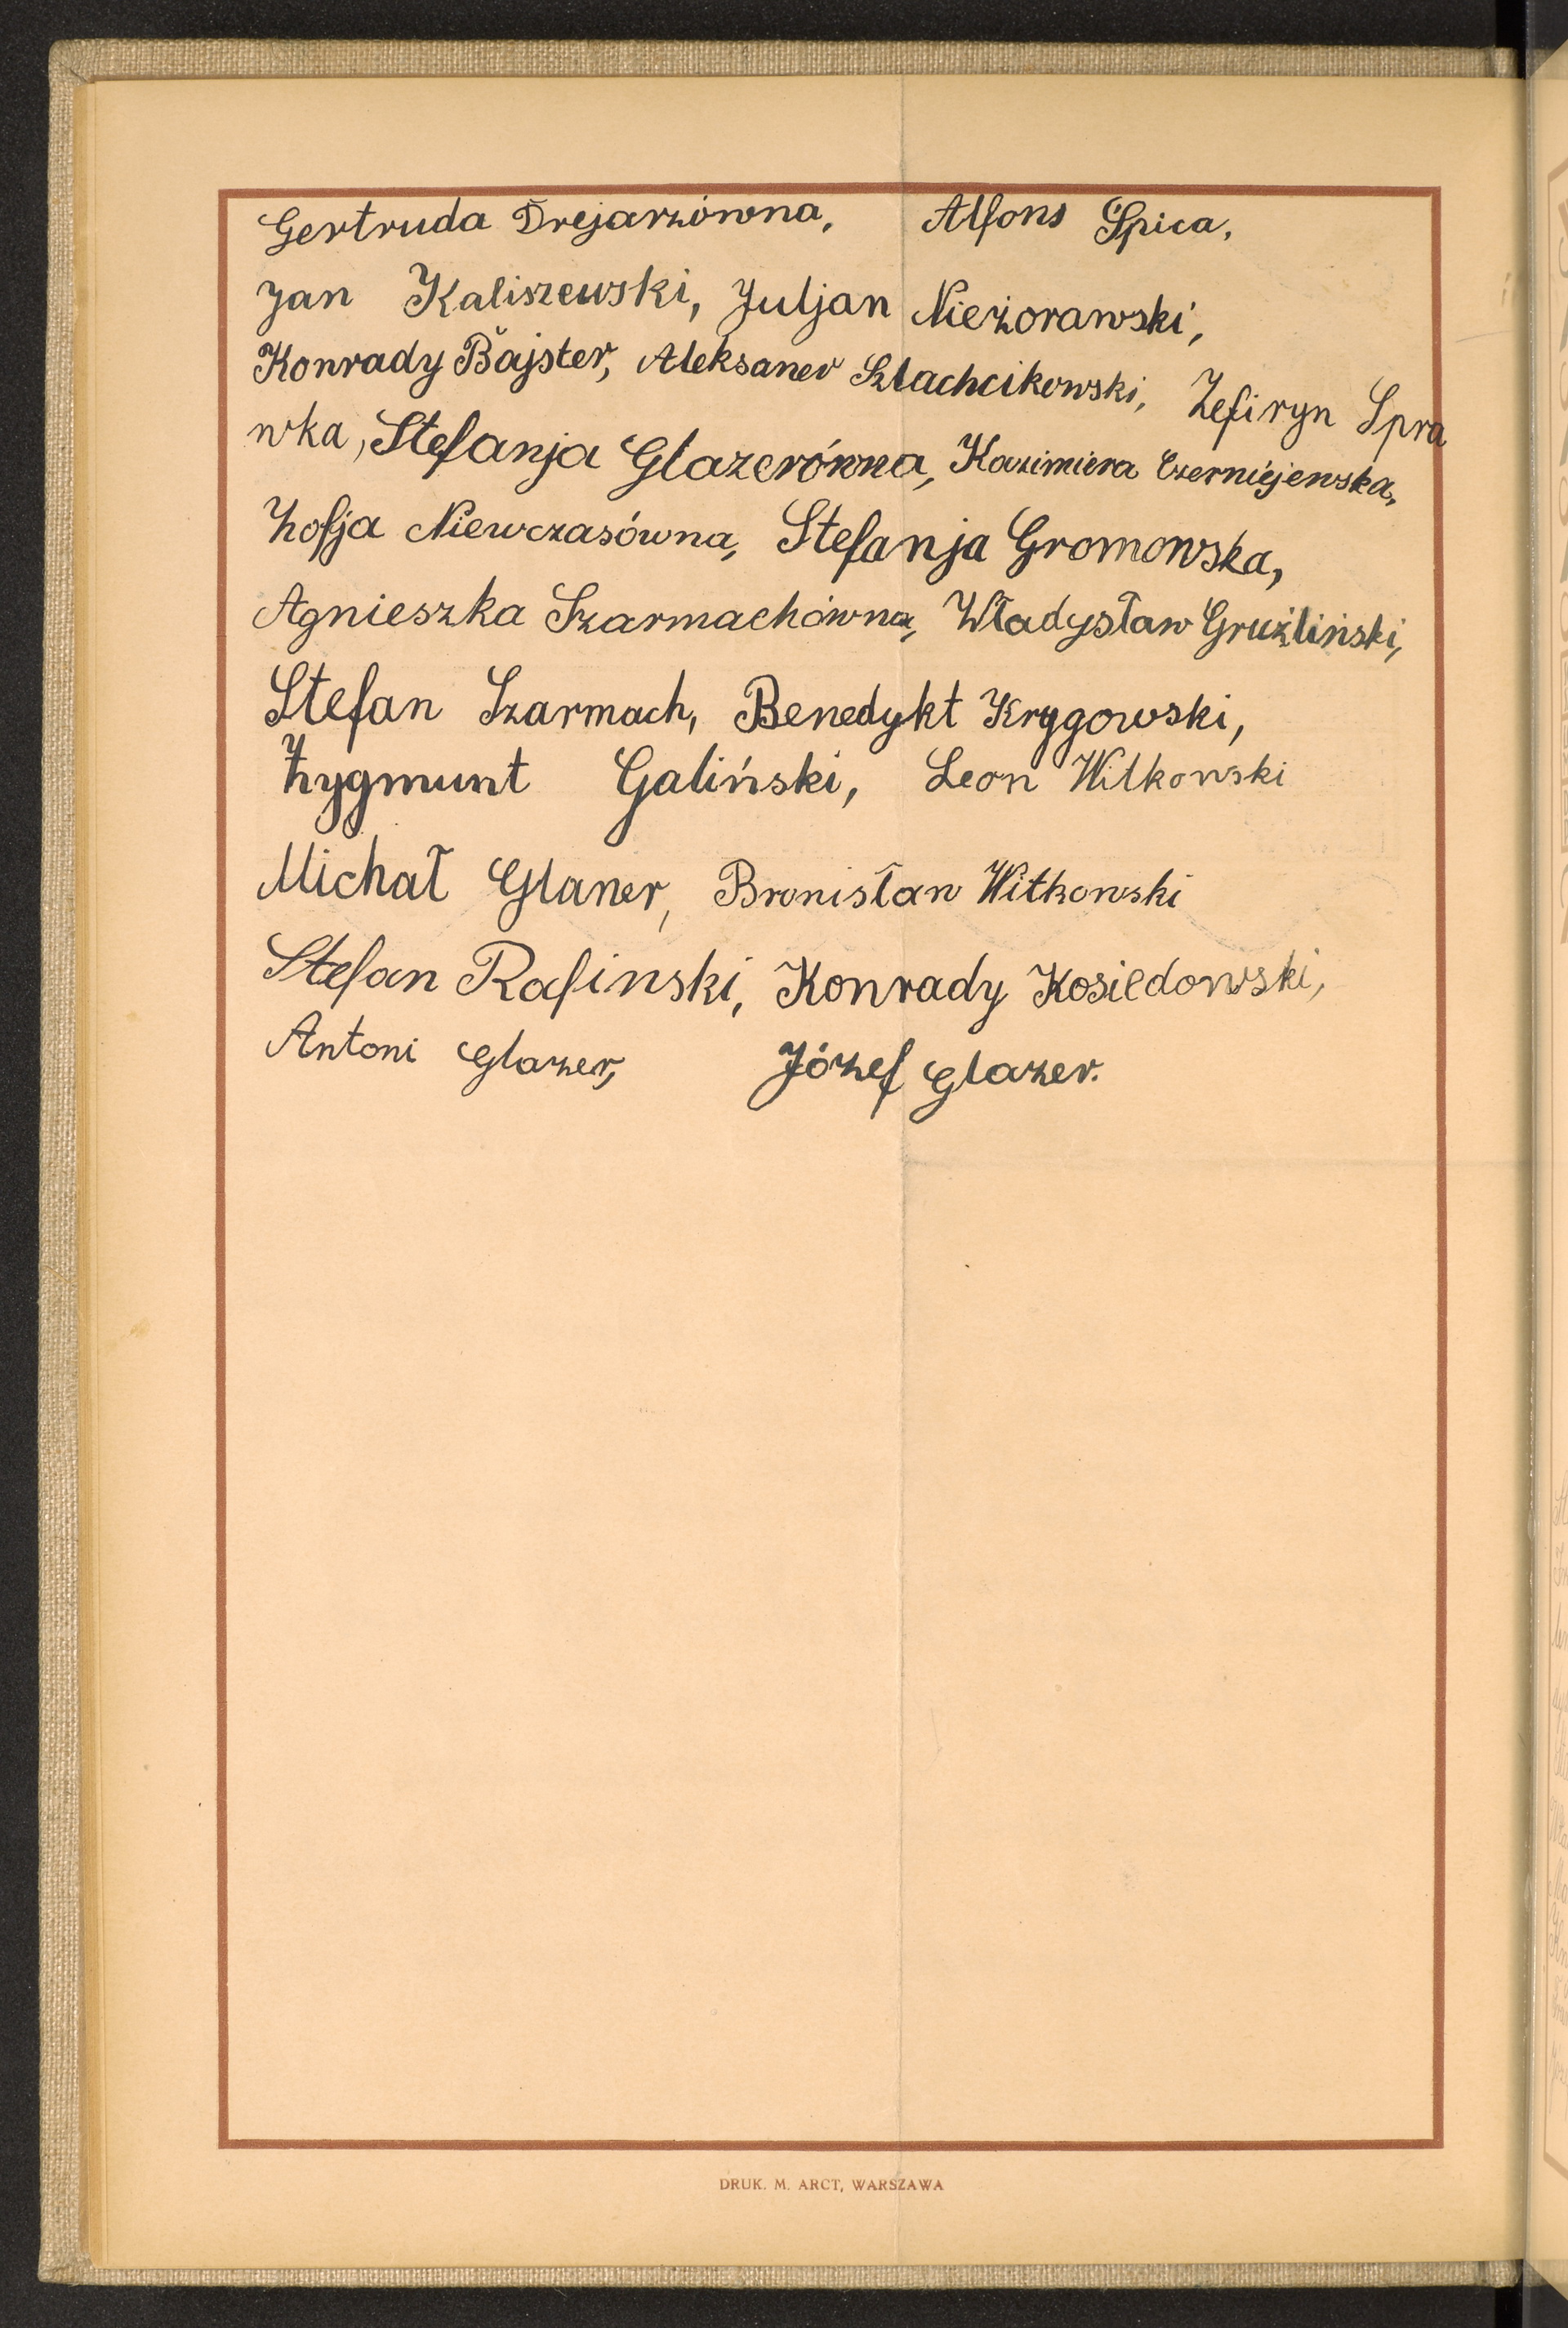 Gertruda Drejarzówna, Alfons Spica,
Jan Kaliszewski, Juljan Nieżorawski,
Konrady Bajster, Aleksaner Szlachcikowski, Zefiryn Spra
wka, Stefanja Glazerówna, Kazimiera Czerniejewska,
Zofja Niewczasówna, Stefanja Gromowska,
Agnieszka Szarmachówna, Władysław Gruźliński,
Stefan Szarmach, Benedykt Krygowski,
Zygmunt Galiński, Leon Witkowski
Michał Glaner, Bronisław Witkowski
Stefan Rafinski, Konrady Kosiedowski,
Antoni Glazer, Józef Glazer.
DRUK. M. ARCT, WARSZAWA